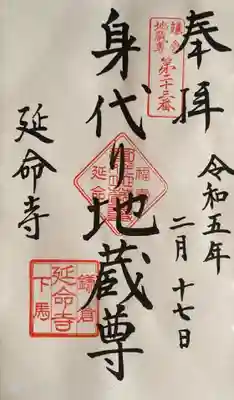 奉拝
鎌倉
地蔵尊
第二十三番
令和五年
二月十七日
身代り地蔵尊
延命寺
鎌倉
延命寺
下馬